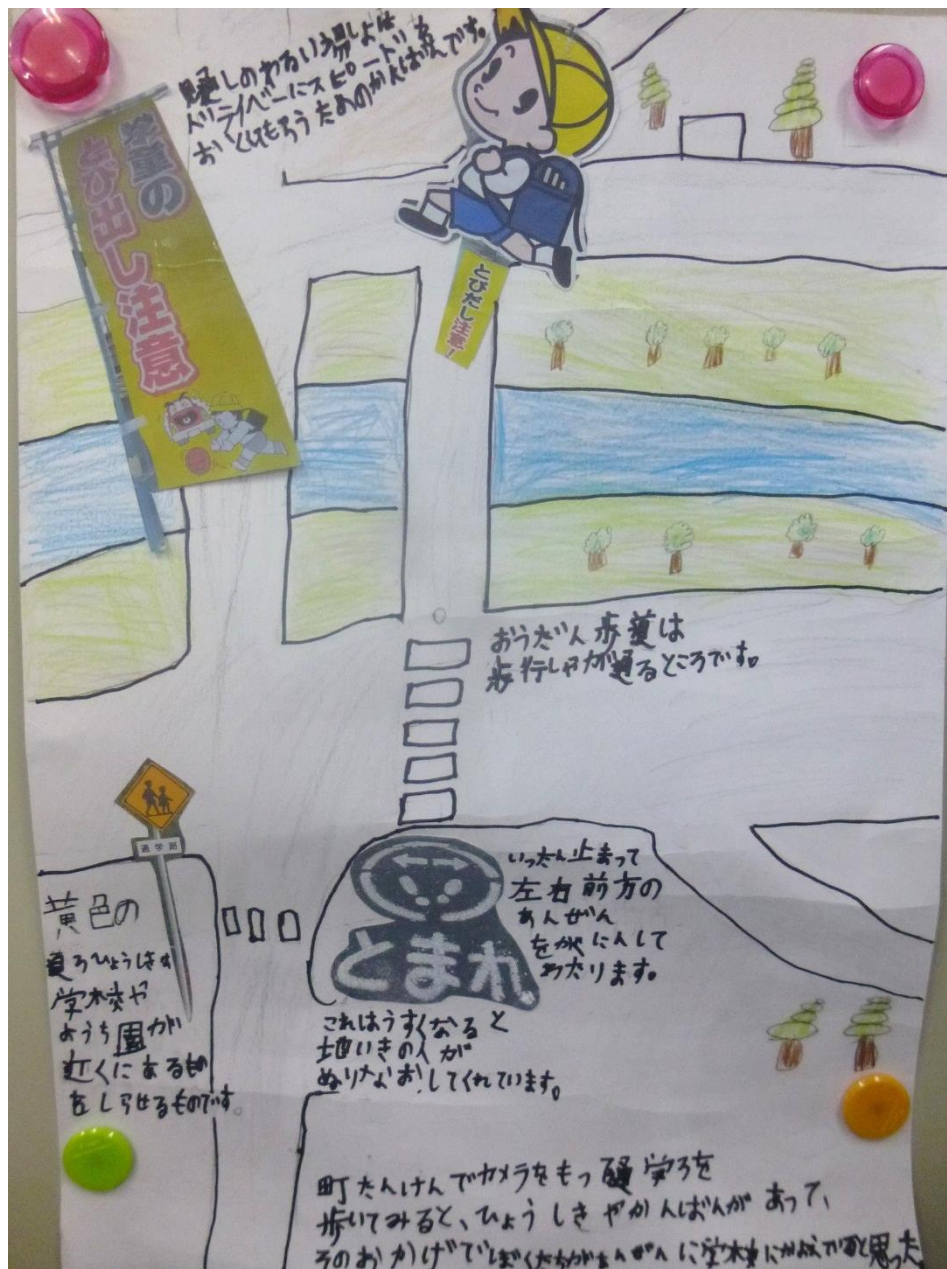 見通しのわるい場しょは
ドライバーにスピードを
おくしてもらうためのかんばんです。
児童の
とび出し注意
とびだし注意!
おうだん歩道は
歩行しゃが通るところです。
通学路
黄色の
道ろひょうしきは
学校や
ようち園が
近くにあるもの
をしらせるものです。
いったん止まって
左右前方の
あんぜん
をかくにんして
わたります。
とまれ
これはうすくなると
地いきの人が
ぬりなおしてくれています。
町たんけんでカメラをもって通学ろを
歩いてみると、ひょうしきやかんばんがあって、
そのおかげでぼくたちがあんぜんに学校にかよえていると思った